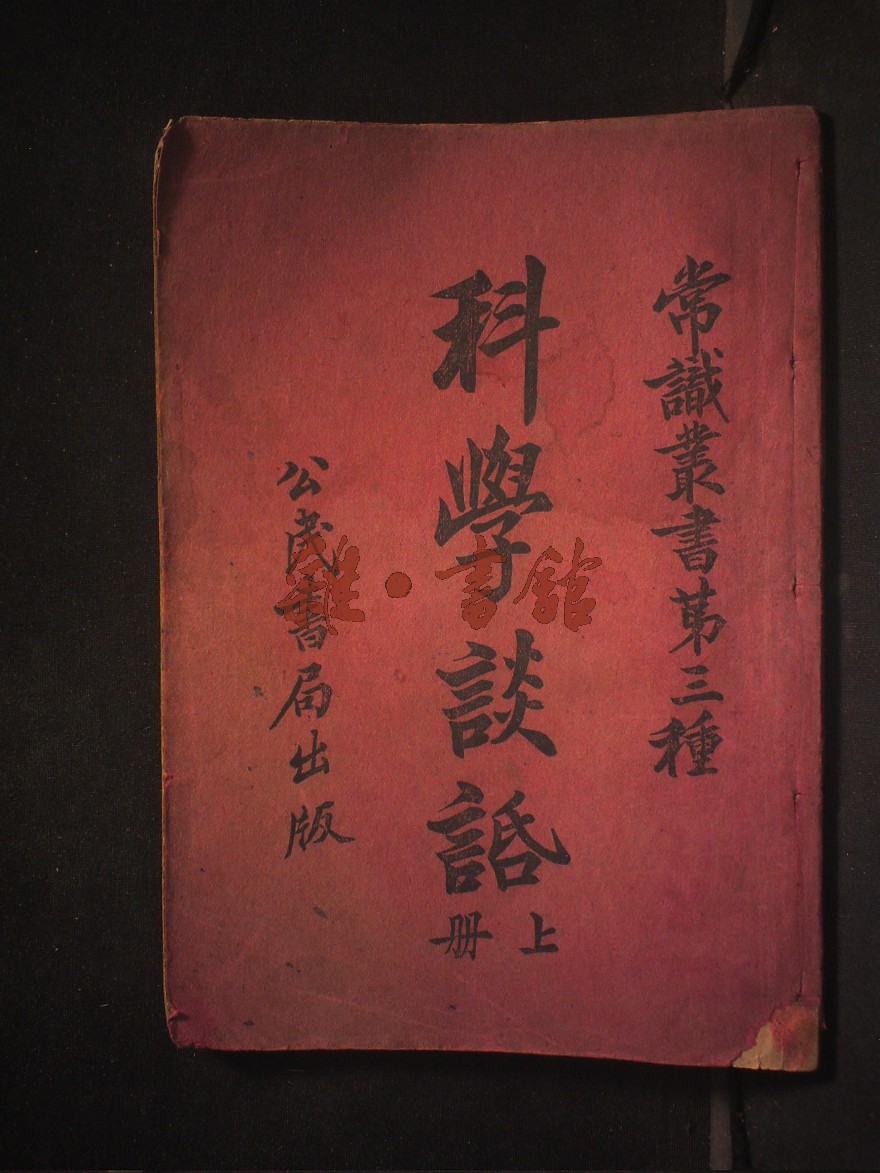 常識叢書第三種
科學談話
上册
公民書局出版
雜·書館